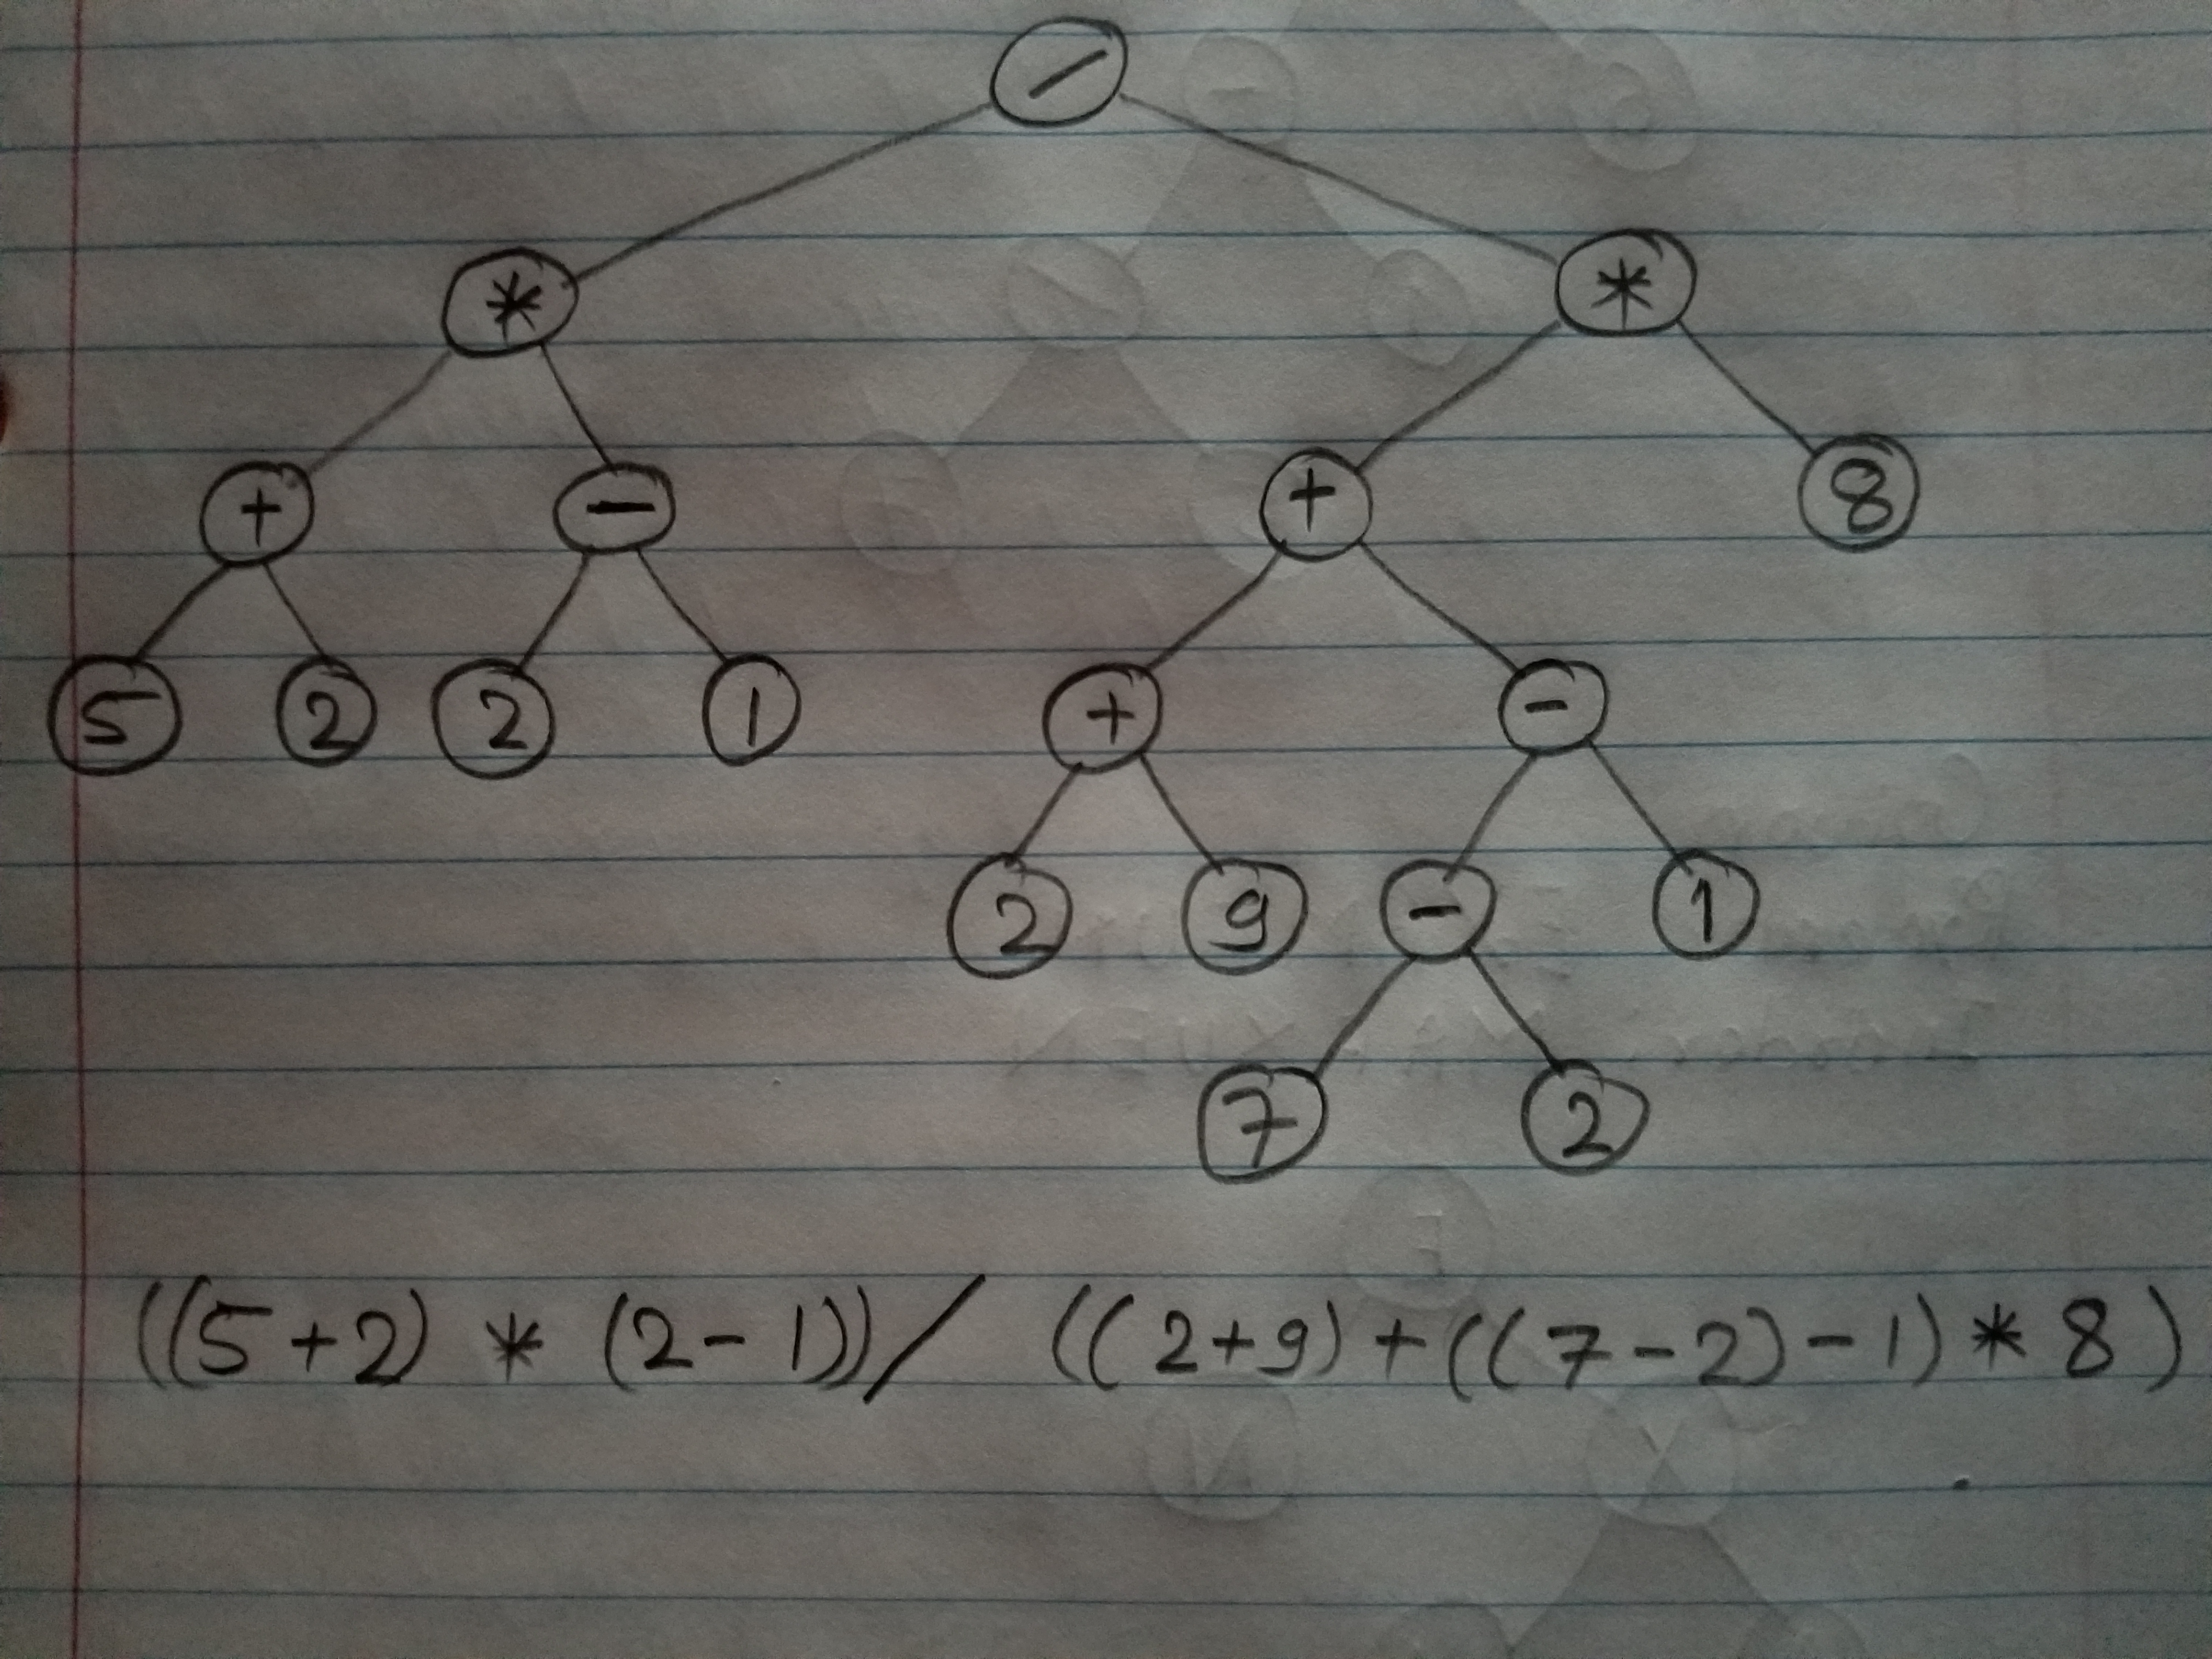 /
* *
+ - + 8
5 2 2 1 + -
2 9 - 1
7 2
((5+2) * (2-1)) / ((2+9)+((7-2)-1)*8)